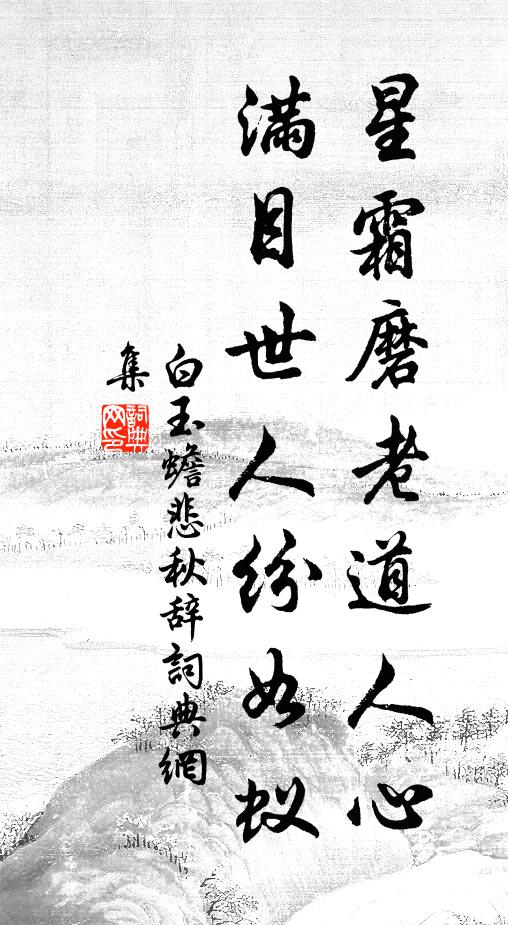 星霜磨老道人心
满目世人纷如蚁
白玉蟾悲秋辞詞典網
集
詞典网印